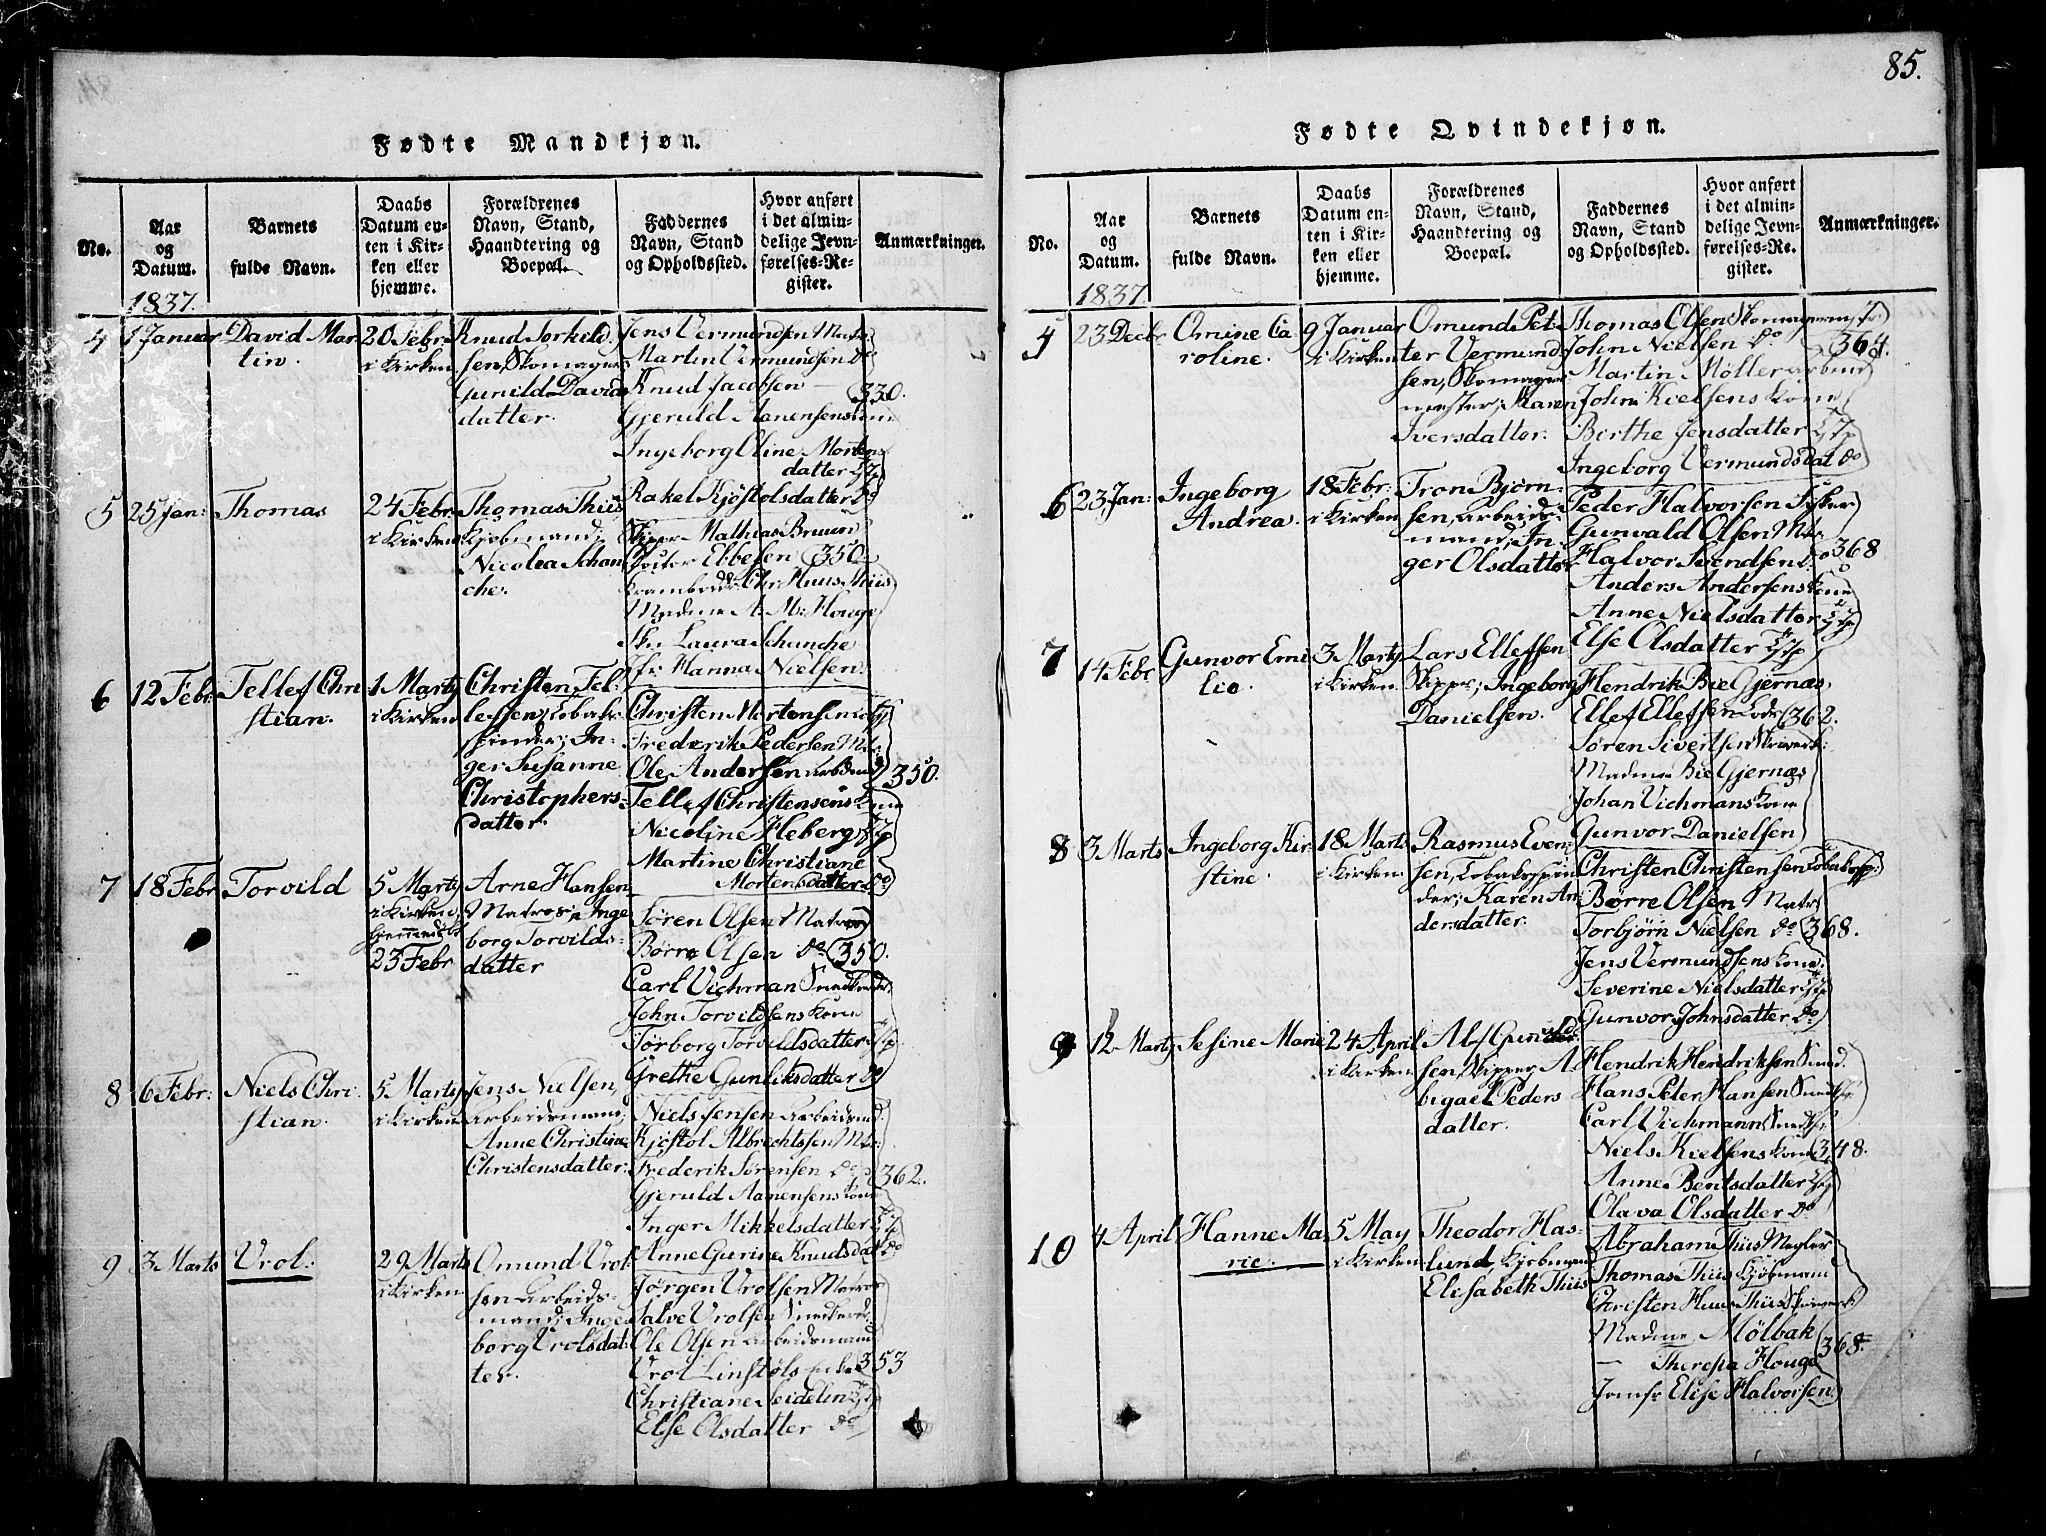 85.
Fødte Mandkjøn.
No.
Aar
og
Datum.
1837.
Barnets
fulde Navn.
Daabs
Datum en-
ten i Kir-
ken eller
hjemme.
Forældrenes
Navn, Stand,
Haandtering og
Boepæl.
Faddernes
Navn, Stand
og Opholdssted.
Hvor anført
i det almin-
delige Jevn-
førelses-Re-
gister.
Anmærkninger.
4
1 Januar
David Mar
tin.
20 Febr.
i Kirken
Knud Torkild-
sen, Skomager
Gunild Davids
datter.
Jens Vermundsen Matr
Martin Vermundsen Do
Knud Jacobsen —
Gjeruld Aanensens Kone
Ingeborg Oline Morten
datter
Rakel Kjøstolsdatter Do
330.
5
25 Jan:
Thomas
24 Febr
i Kirken
Thomas Thiis
Kjøbmand;
Nicolea Schan
che.
Skipper Mathias Bruun
Ebbesen
Chr. Huus Thiis
Madme A: M: Houge
Laura Schanche
Jfr Hanna Nielsen.
350
6
12 Febr.
Tellef Chri
stian.
1 Marts
i Kirken
Christen Tel-
lefsen, Tobak-
spinder; In-
ger Susanne
Christophers-
datter.
Christen Mortensen
Frederik Pedersen Mtr
Ole Andersen arbdmd
Tellef Christensens Kone
Nicoline Heberg
Martine Christiane
Mortensdatter Do
350.
7
18 Febr
Torvild
5 Marts
i Kirken,
hjemmedøbt
23 Febr
Arne Hansen
Matros; Inge
borg Torvilds-
datter
Søren Olsen Matros
Børre Olsen Do
Carl Vichman
John Torvildsens Kone
Torborg Torvildsdatter
Grethe Gunliksdatter Do
350.
8
6 Febr:
Niels Chri-
stian.
5 Marts
i Kirken
Jens Nielsen,
arbeidsmand;
Anne Christine
Christensdatter.
Niels Jensen Arbeidsmd.
Kjøstol Albrechtssen Mtr.
Frederik Sørensen Do
Gjeruld Aanensens Kone
Inger Mikkelsdatter
Anne Gurine Knudsdat Do
362.
9
3 Marts
Vrol.
29 Marts
i Kirken
Omund Vrol-
sen Arbeids-
mand; Inge
borg Vrolsdat-
ter.
Jørgen Vrolsen Matros
Salve Vrolsen
Ole Olsen arbeidsmand
Vrol Linstøls enke
Christiane Seidelin
Else Olsdatter Do
353
Fødte Qvindekjøn.
No.
Aar
og
Datum.
1837
Barnets
fulde Navn.
Daabs
Datum en-
ten i Kir-
ken eller
hjemme.
Forældrenes
Navn, Stand,
Haandtering og
Boepæl.
Faddernes
Navn, Stand
og Opholdssted.
Hvor anført
i det almin-
delige Jevn-
førelses-Re-
gister.
Anmærkninger.
5
23 Decbr
Omine Ca
roline.
9 Januar
i Kirken
Omund Pet-
ter Vermund-
sen, Skomager
mester; Karen
Iversdatter.
Thomas Olsen Skomagermstr.
John Nielsen Do
Martin Möller arbmd
John Kielsens Kone
Birthe Jensdatter
Ingeborg Vermundsdat Do
364.
6
23 Jan:
Ingeborg
Andrea.
18 Febr:
i Kirken
Tron Bjørn-
sen, arbeids-
mand; In-
ger Olsdatter
Peder Halvorsen Fisker
Gunvald Olsen Mtr
Halvor Svendsen Do
Anders Andersens Kone
Anne Nielsdatter
Else Olsdatter
368
7
14 Febr
Gunvor Emi
lie.
3 Marts
i Kirken.
Lars Ellefsen
Skipper; Ingeborg
Danielsen.
Hendrik Bie Gjernæs
Ellef Ellefsen Lods
Søren Sivertsen
Madme Bie Gjernæs
Johan Vichmans Kone
Gunvor Danielsen
362.
8
3 Marts
Ingeborg Kir-
stine.
18 Marts
i Kirken.
Rasmus Even-
sen, Tobakspin
der; Karen An
dersdatter.
Christen Christensen Tobaksp:
Børre Olsen Matr
Torbjørn Nielsen Do
Jens Vermundsens Kone
Severine Nielsdatter
Gunvor Johnsdatter Do
368.
9
12 Marts
Sesine Marie
24 April
i Kirken
Alf Gunvald-
sen, Skipper; A
bigael Peders
datter.
Hendrik Hendriksen Snedk.
Hans Peter Hansen Snedk
Carl Vichmann Snedk
Niels Kielsens Kone
Anne Bentsdatter
Olava Olsdatter Do
348.
10
4 April
Hanne Ma
rie.
5 May
i Kirken
Theodor Has-
lund, Kjøbmand
Elisabeth Thiis
Abraham Thiis Megler
Thomas Thiis Kjøbmand
Christen Huus Thiis
Madme Mölbak
— Theresa Houge
Jomfr Elise Halvorsen.
368.